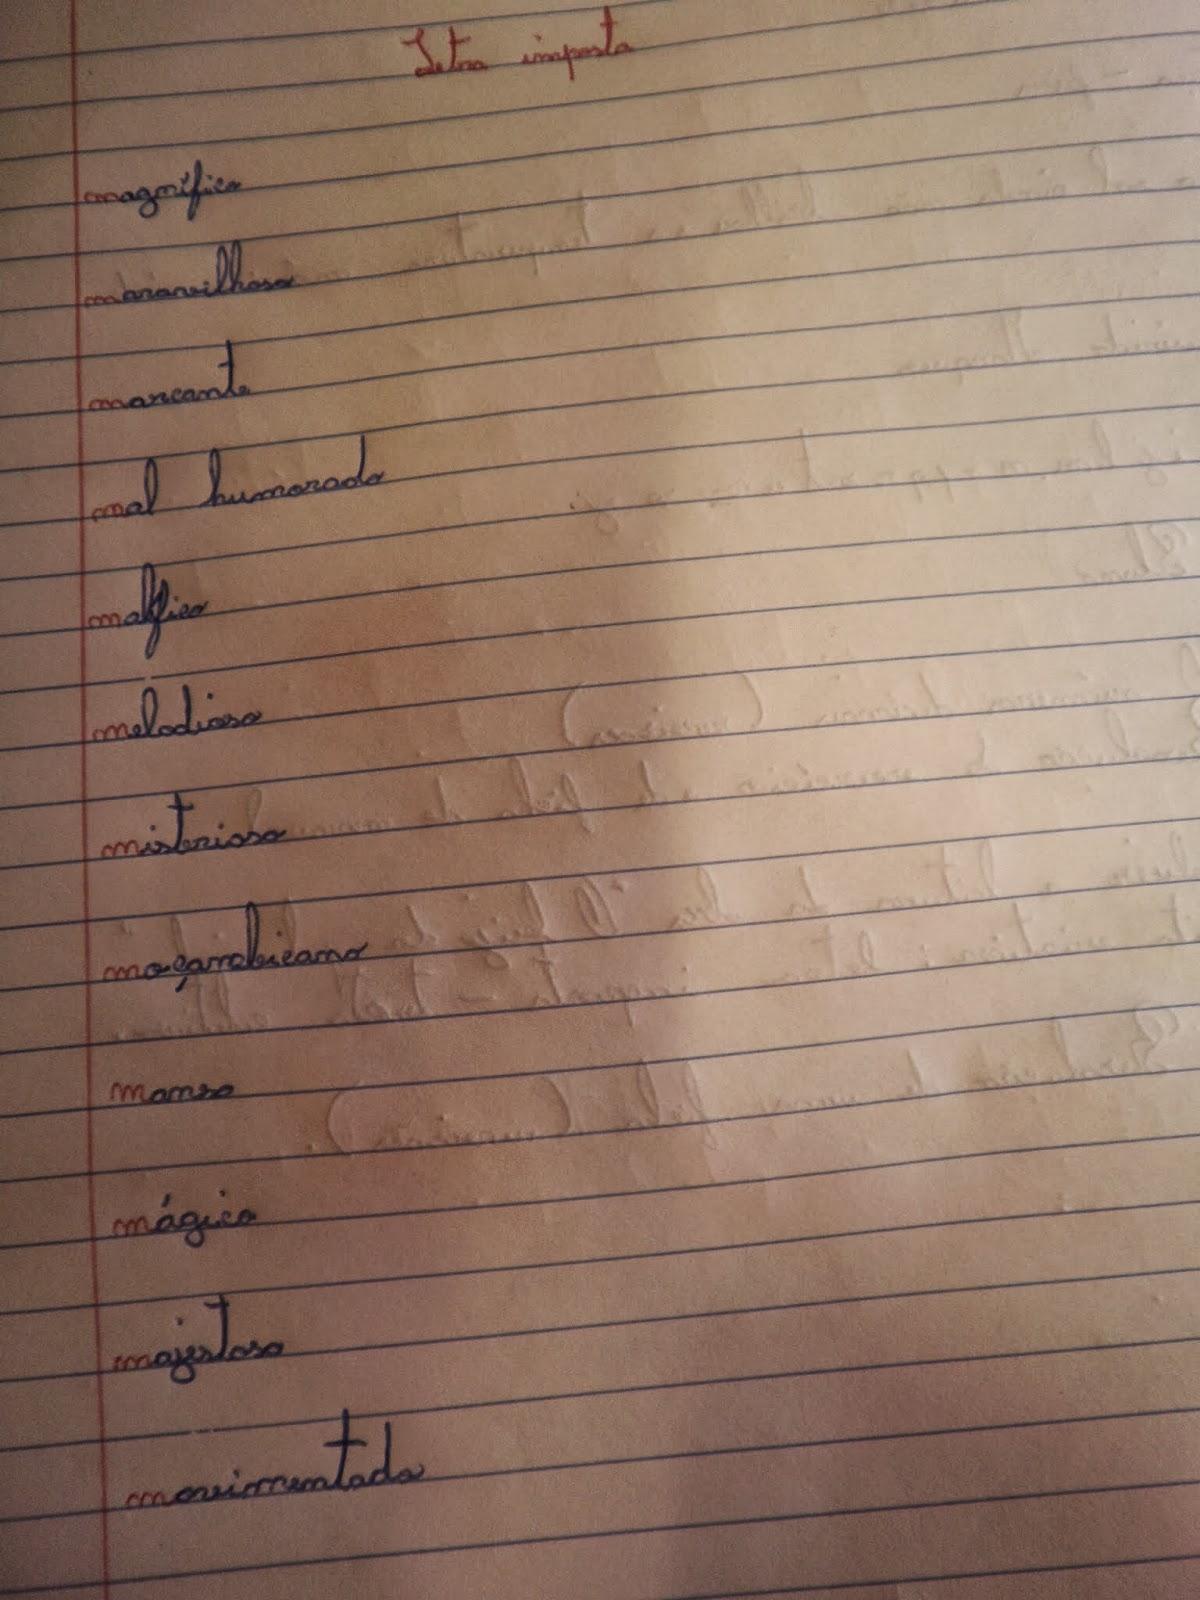 Letra imposta
magnífico
maravilhoso
marcante
mal humorado
maléfico
melodioso
misterioso
moçambicano
manso
mágico
majestoso
movimentada